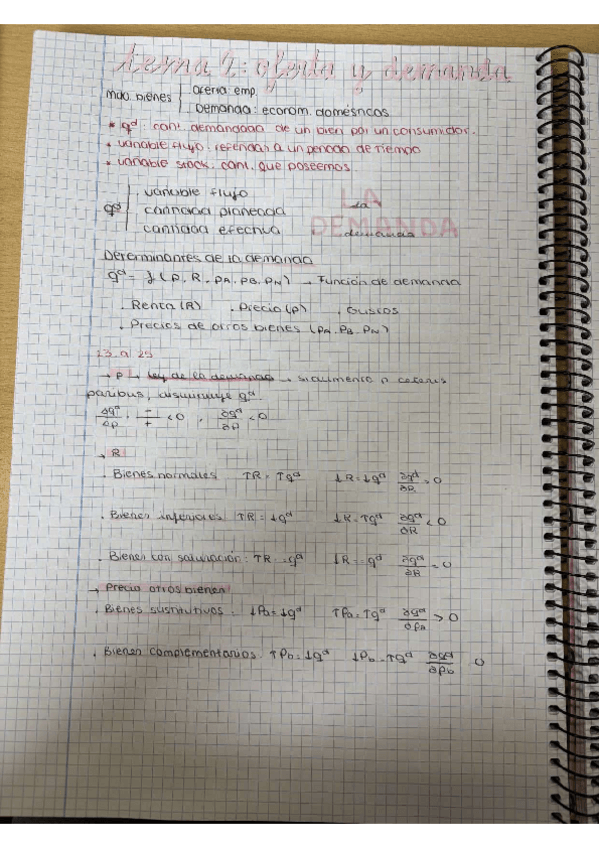 Tema 2: oferta y demanda
Mdo bienes | Oferta: emp.
Demanda: econom. domésticas
* qᵈ: cant. demandada de un bien por un consumidor.
* variable flujo: referidas a un periodo de tiempo
* variable stock: cant. que poseemos
qᵈ | variable flujo
cantidad planeada
cantidad efectiva
LA
DEMANDA
la
demanda
Determinantes de la demanda
qᵈ = f (P, R, PA, PB, PN) → Función de demanda
· Renta (R) · Precio (p) · Gustos
· Precios de otros bienes (PA, PB, PN)
→ P → Ley de la demanda → si aumenta p ceteris
paribus, disminuye qᵈ
Δqᵈ/Δp = −/+ < 0 , ∂qᵈ/∂p < 0
→ R
· Bienes normales ↑R = ↑qᵈ ↓R = ↓qᵈ ∂qᵈ/∂R > 0
· Bienes inferiores ↑R = ↓qᵈ ↓R = ↑qᵈ ∂qᵈ/∂R < 0
· Bienes con saturación: ↑R = =qᵈ ↓R = =qᵈ ∂qᵈ/∂R = 0
→ Precio otros bienes
· Bienes sustitutivos = ↓Pa = ↓qᵈ ↑Pa = ↑qᵈ ∂qᵈ/∂PA > 0
· Bienes complementarios ↑Pb = ↓qᵈ ↓Pb = ↑qᵈ ∂qᵈ/∂Pb 0